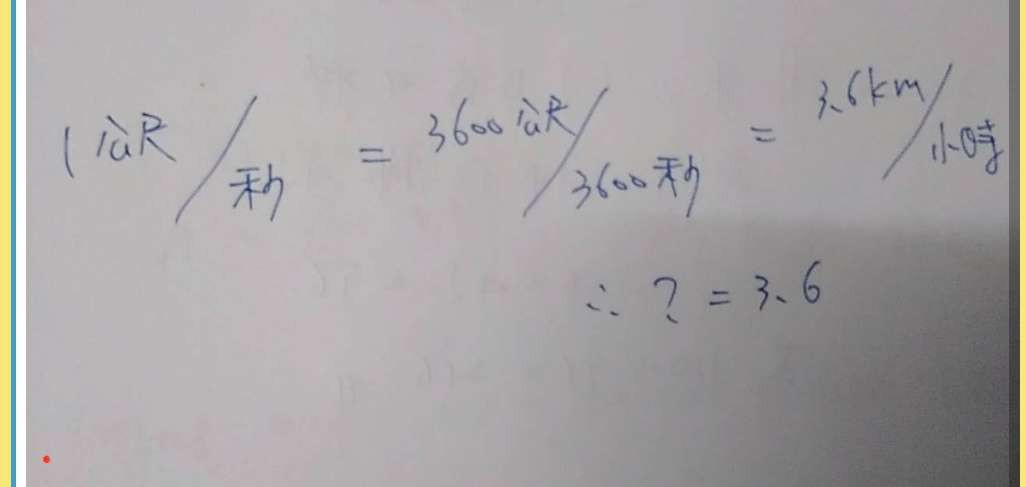 1公尺/秒 = 3600公尺/3600秒 = 3.6km/小時
∴ ? = 3.6